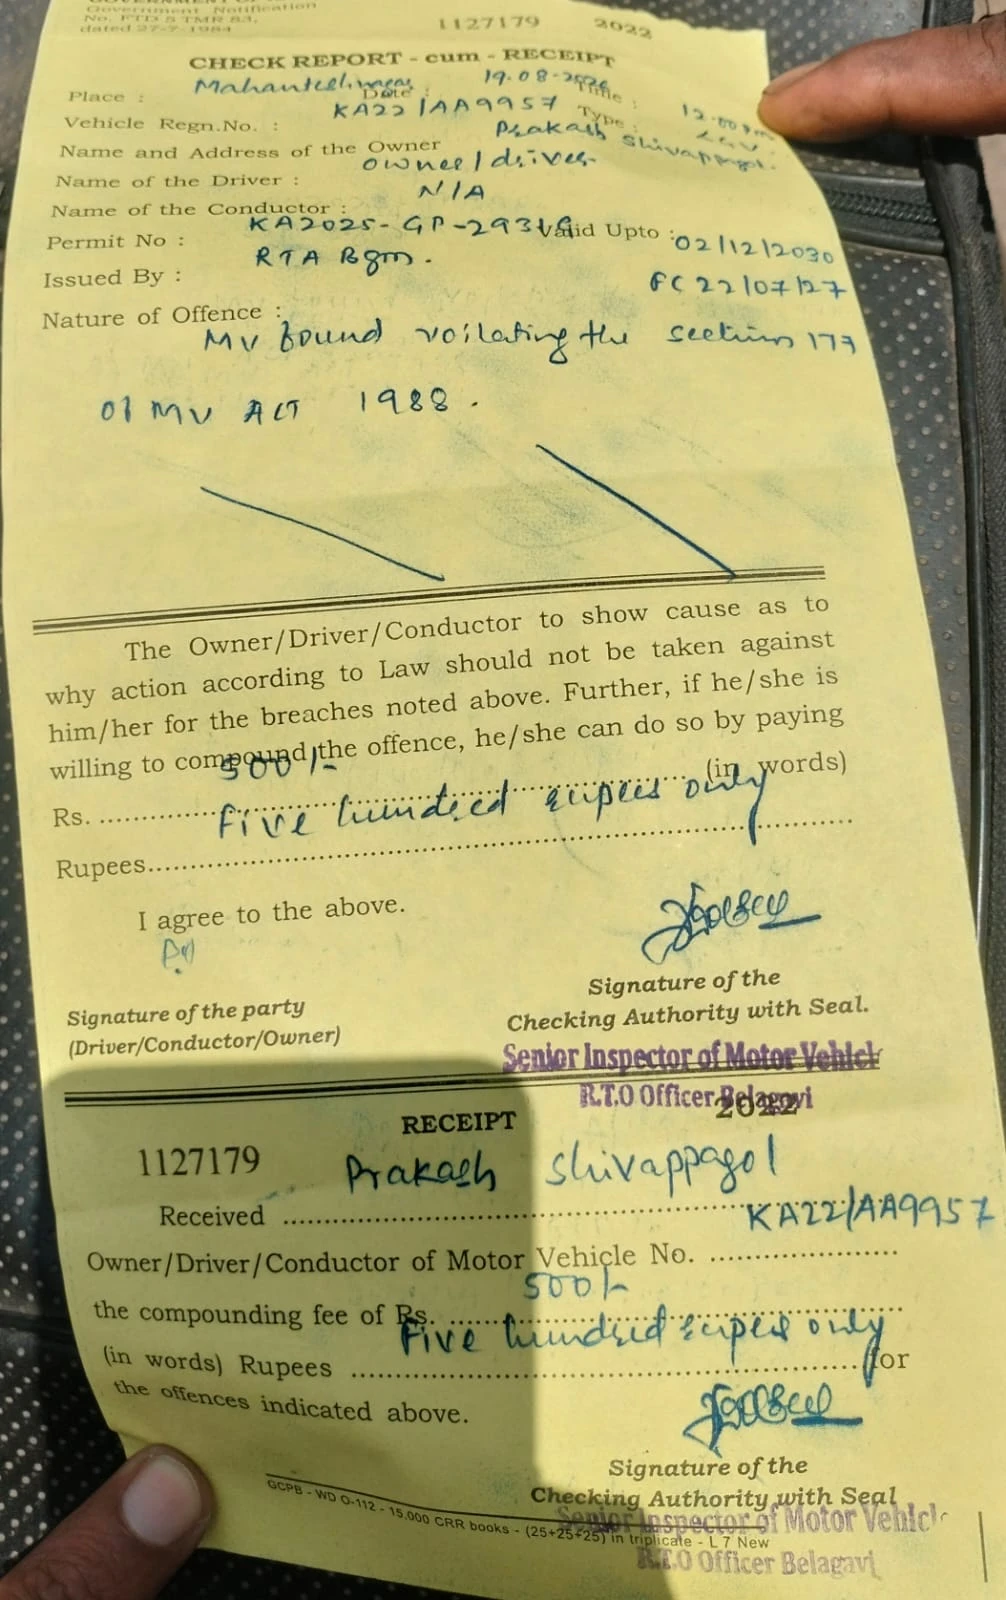 Government Notification
No. FTD 5 TMR 83,
dated 27-7-1984
1127179 2022
CHECK REPORT - cum - RECEIPT
Place : Date : 19-08-2026 Time : 12-00 pm
Vehicle Regn.No. : KA22/AA9957 Type : LGV.
Name and Address of the Owner Prakash Shivappagol.
Name of the Driver : owner/driver.
Name of the Conductor : N/A
Permit No : KA2025-GP- Valid Upto : 02/12/2030
Issued By : RTA Bgm. FC 22/07/27
Nature of Offence :
MV found voilating the section 177
of MV ACT 1988.
The Owner/Driver/Conductor to show cause as to
why action according to Law should not be taken against
him/her for the breaches noted above. Further, if he/she is
willing to compound the offence, he/she can do so by paying
Rs. 500/- (in words)
Rupees five hundred rupees only
I agree to the above.
Signature of the party
(Driver/Conductor/Owner)
Signature of the
Checking Authority with Seal.
Senior Inspector of Motor Vehicle
R.T.O Officer Belagavi
2022
RECEIPT
1127179
Received Prakash Shivappagol
Owner/Driver/Conductor of Motor Vehicle No. KA22/AA9957
the compounding fee of Rs. 500/-
(in words) Rupees five hundred rupees only for
the offences indicated above.
Signature of the
Checking Authority with Seal
Senior Inspector of Motor Vehicle
R.T.O Officer Belagavi
GCPB - WD O-112 - 15,000 CRR books - (25+25+25) in triplicate - L 7 New